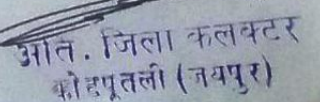 अति. जिला कलक्टर
कोटपूतली (जयपुर)